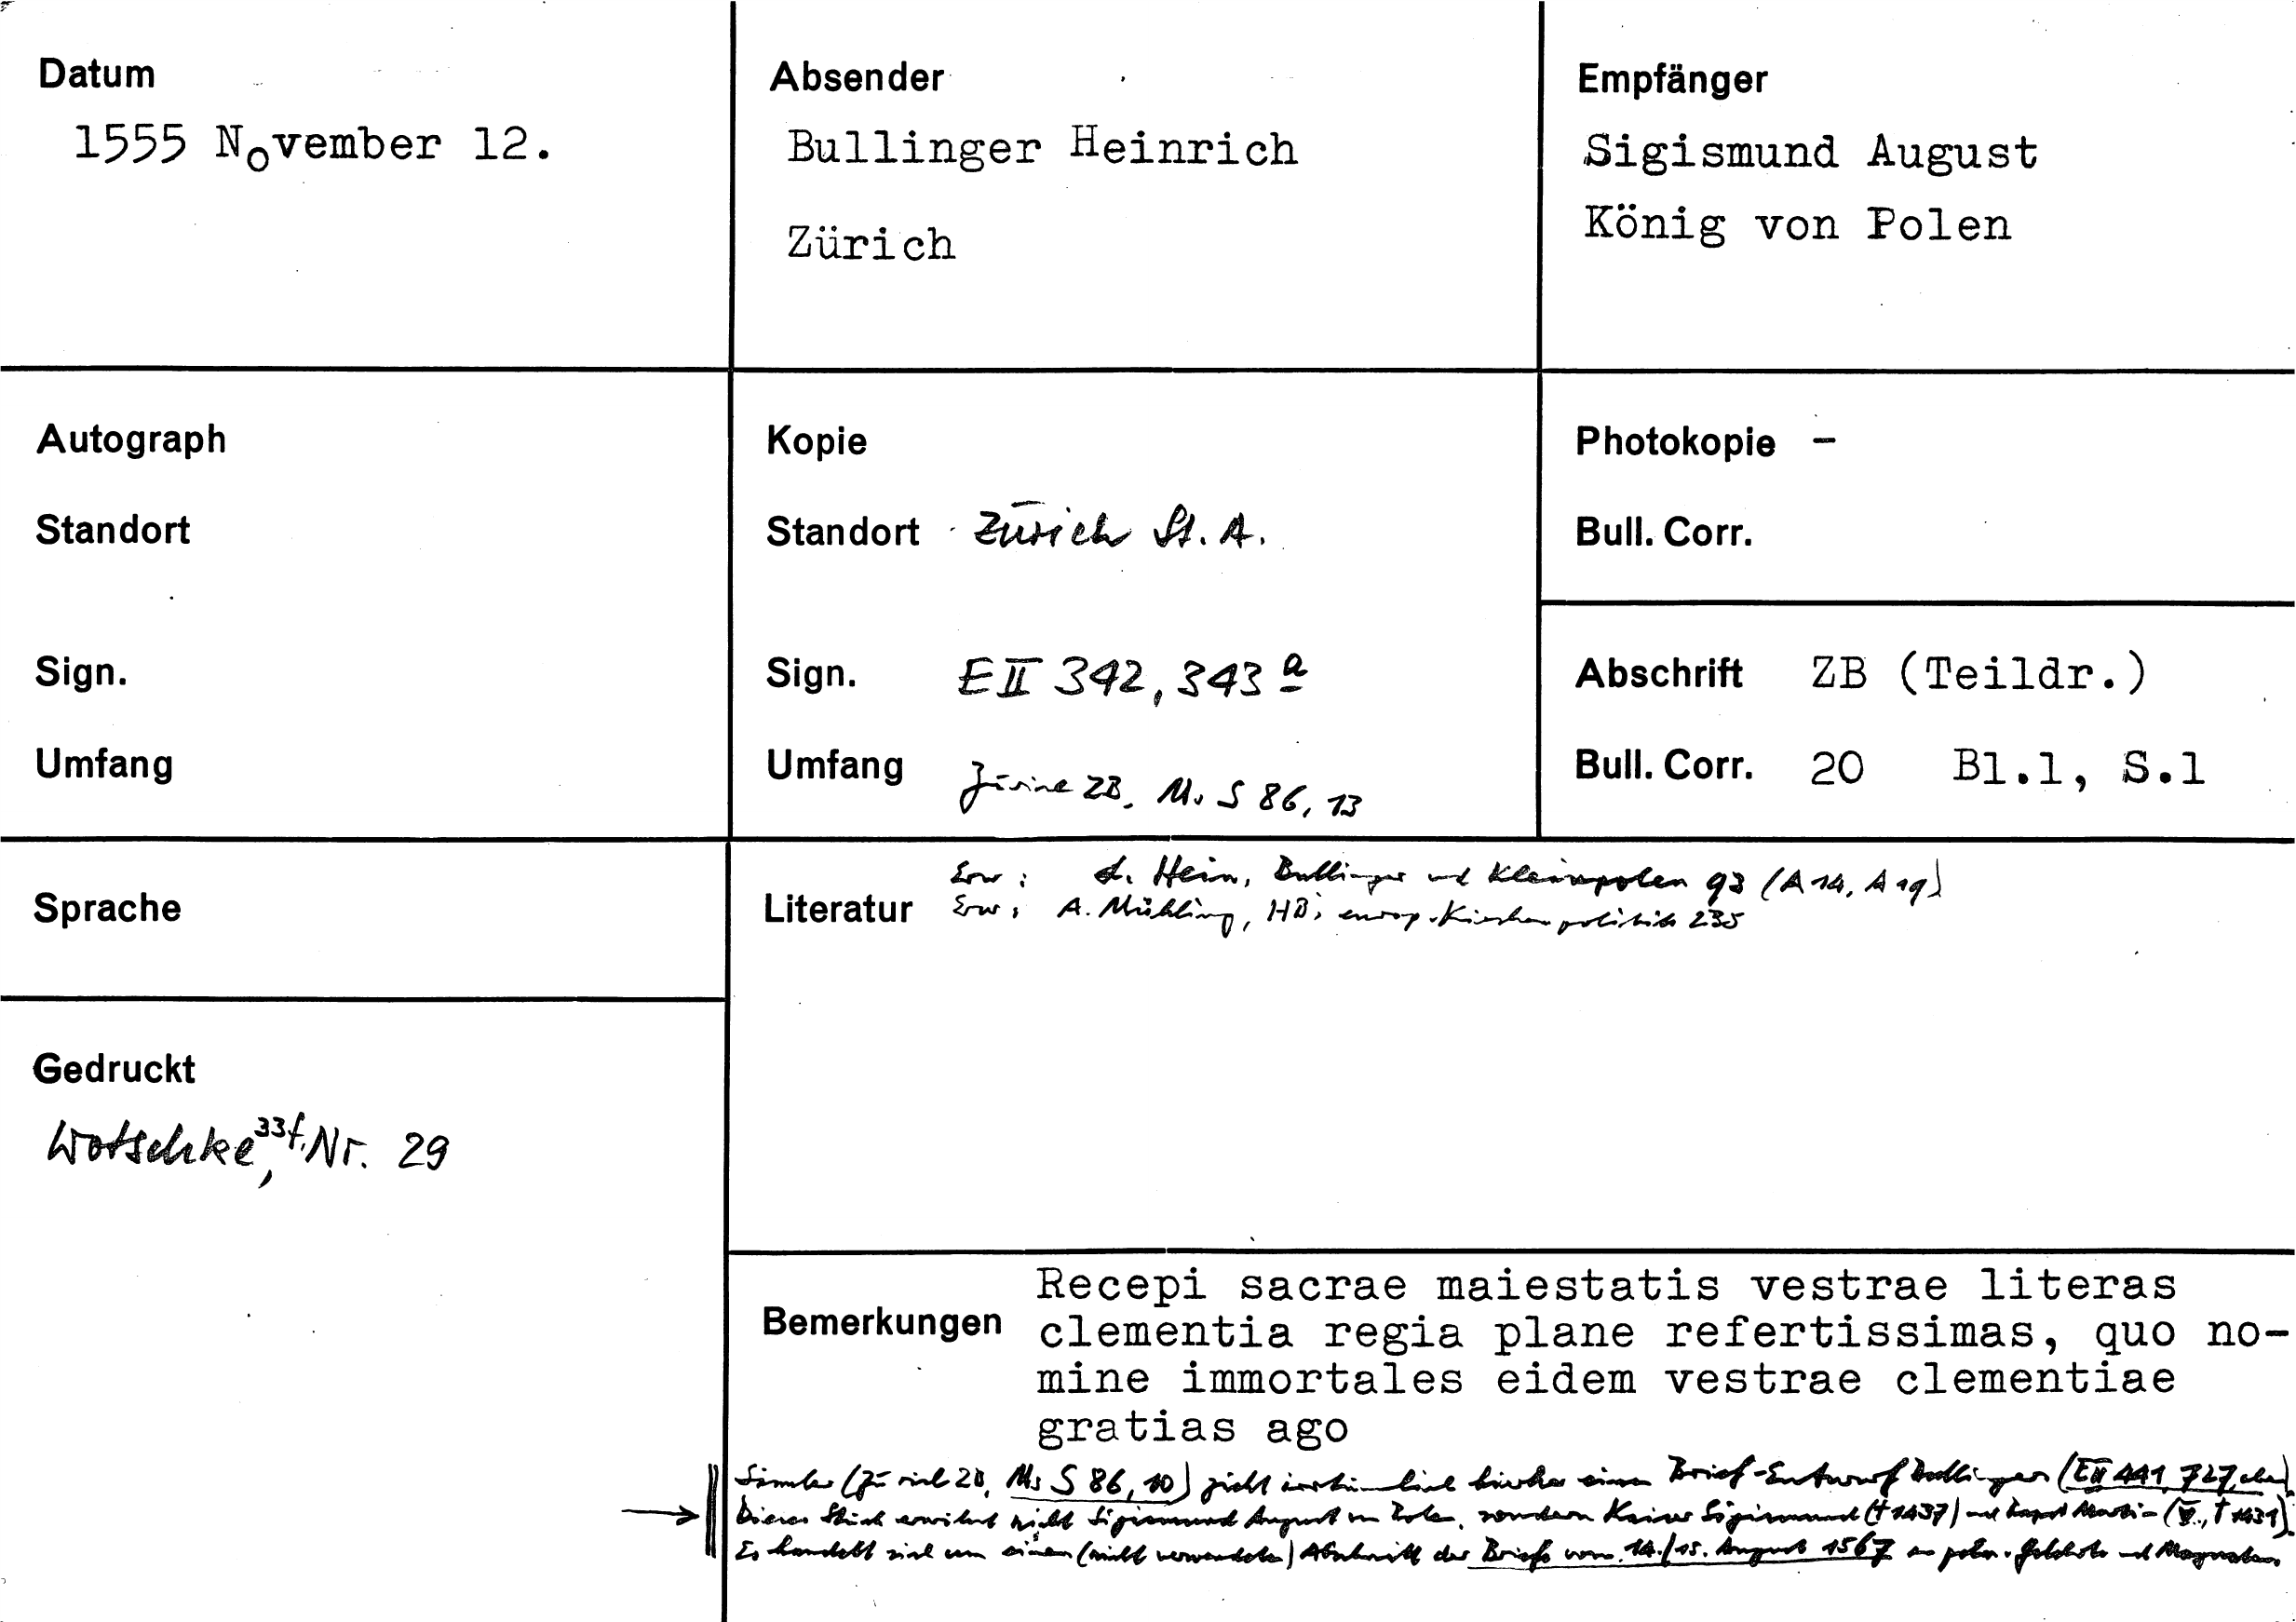 Datum
1555 November 12.
Absender
Bullinger Heinrich
Zürich
Empfänger
Sigismund August
König von Polen
Autograph
Standort
Sign.
Umfang
Kopie
Standort Zürich St. A.
Sign. E II 342, 343 a
Umfang Zürich ZB, Ms S 86, 13
Photokopie -
Bull. Corr.
Abschrift ZB (Teildr.)
Bull. Corr. 20 Bl.1, S.1
Sprache
Gedruckt
Wotschke, 33f, Nr. 29
Erw: L. Hein, Bullinger und Kleinpolen 93 (A 14, A 19)
Literatur Erw: A. Mühling, HBs europ. Kirchenpolitik 235
Bemerkungen
Recepi sacrae maiestatis vestrae literas
clementia regia plane refertissimas, quo no-
mine immortales eidem vestrae clementiae
gratias ago
Simler (Zürich ZB, Ms S 86, 10) zieht irrtümlich hierher einen Brief-Entwurf Bullingers (E II 441, 727,
Dieses Stück erwähnt nicht Sigismund August von Polen, sondern Kaiser Sigismund († 1437) und Papst Martin (V., † 1431).
Es handelt sich um einen (nicht verwendeten) Abschnitt des Briefs vom 14./15. August 1567 an poln. und Magnaten.